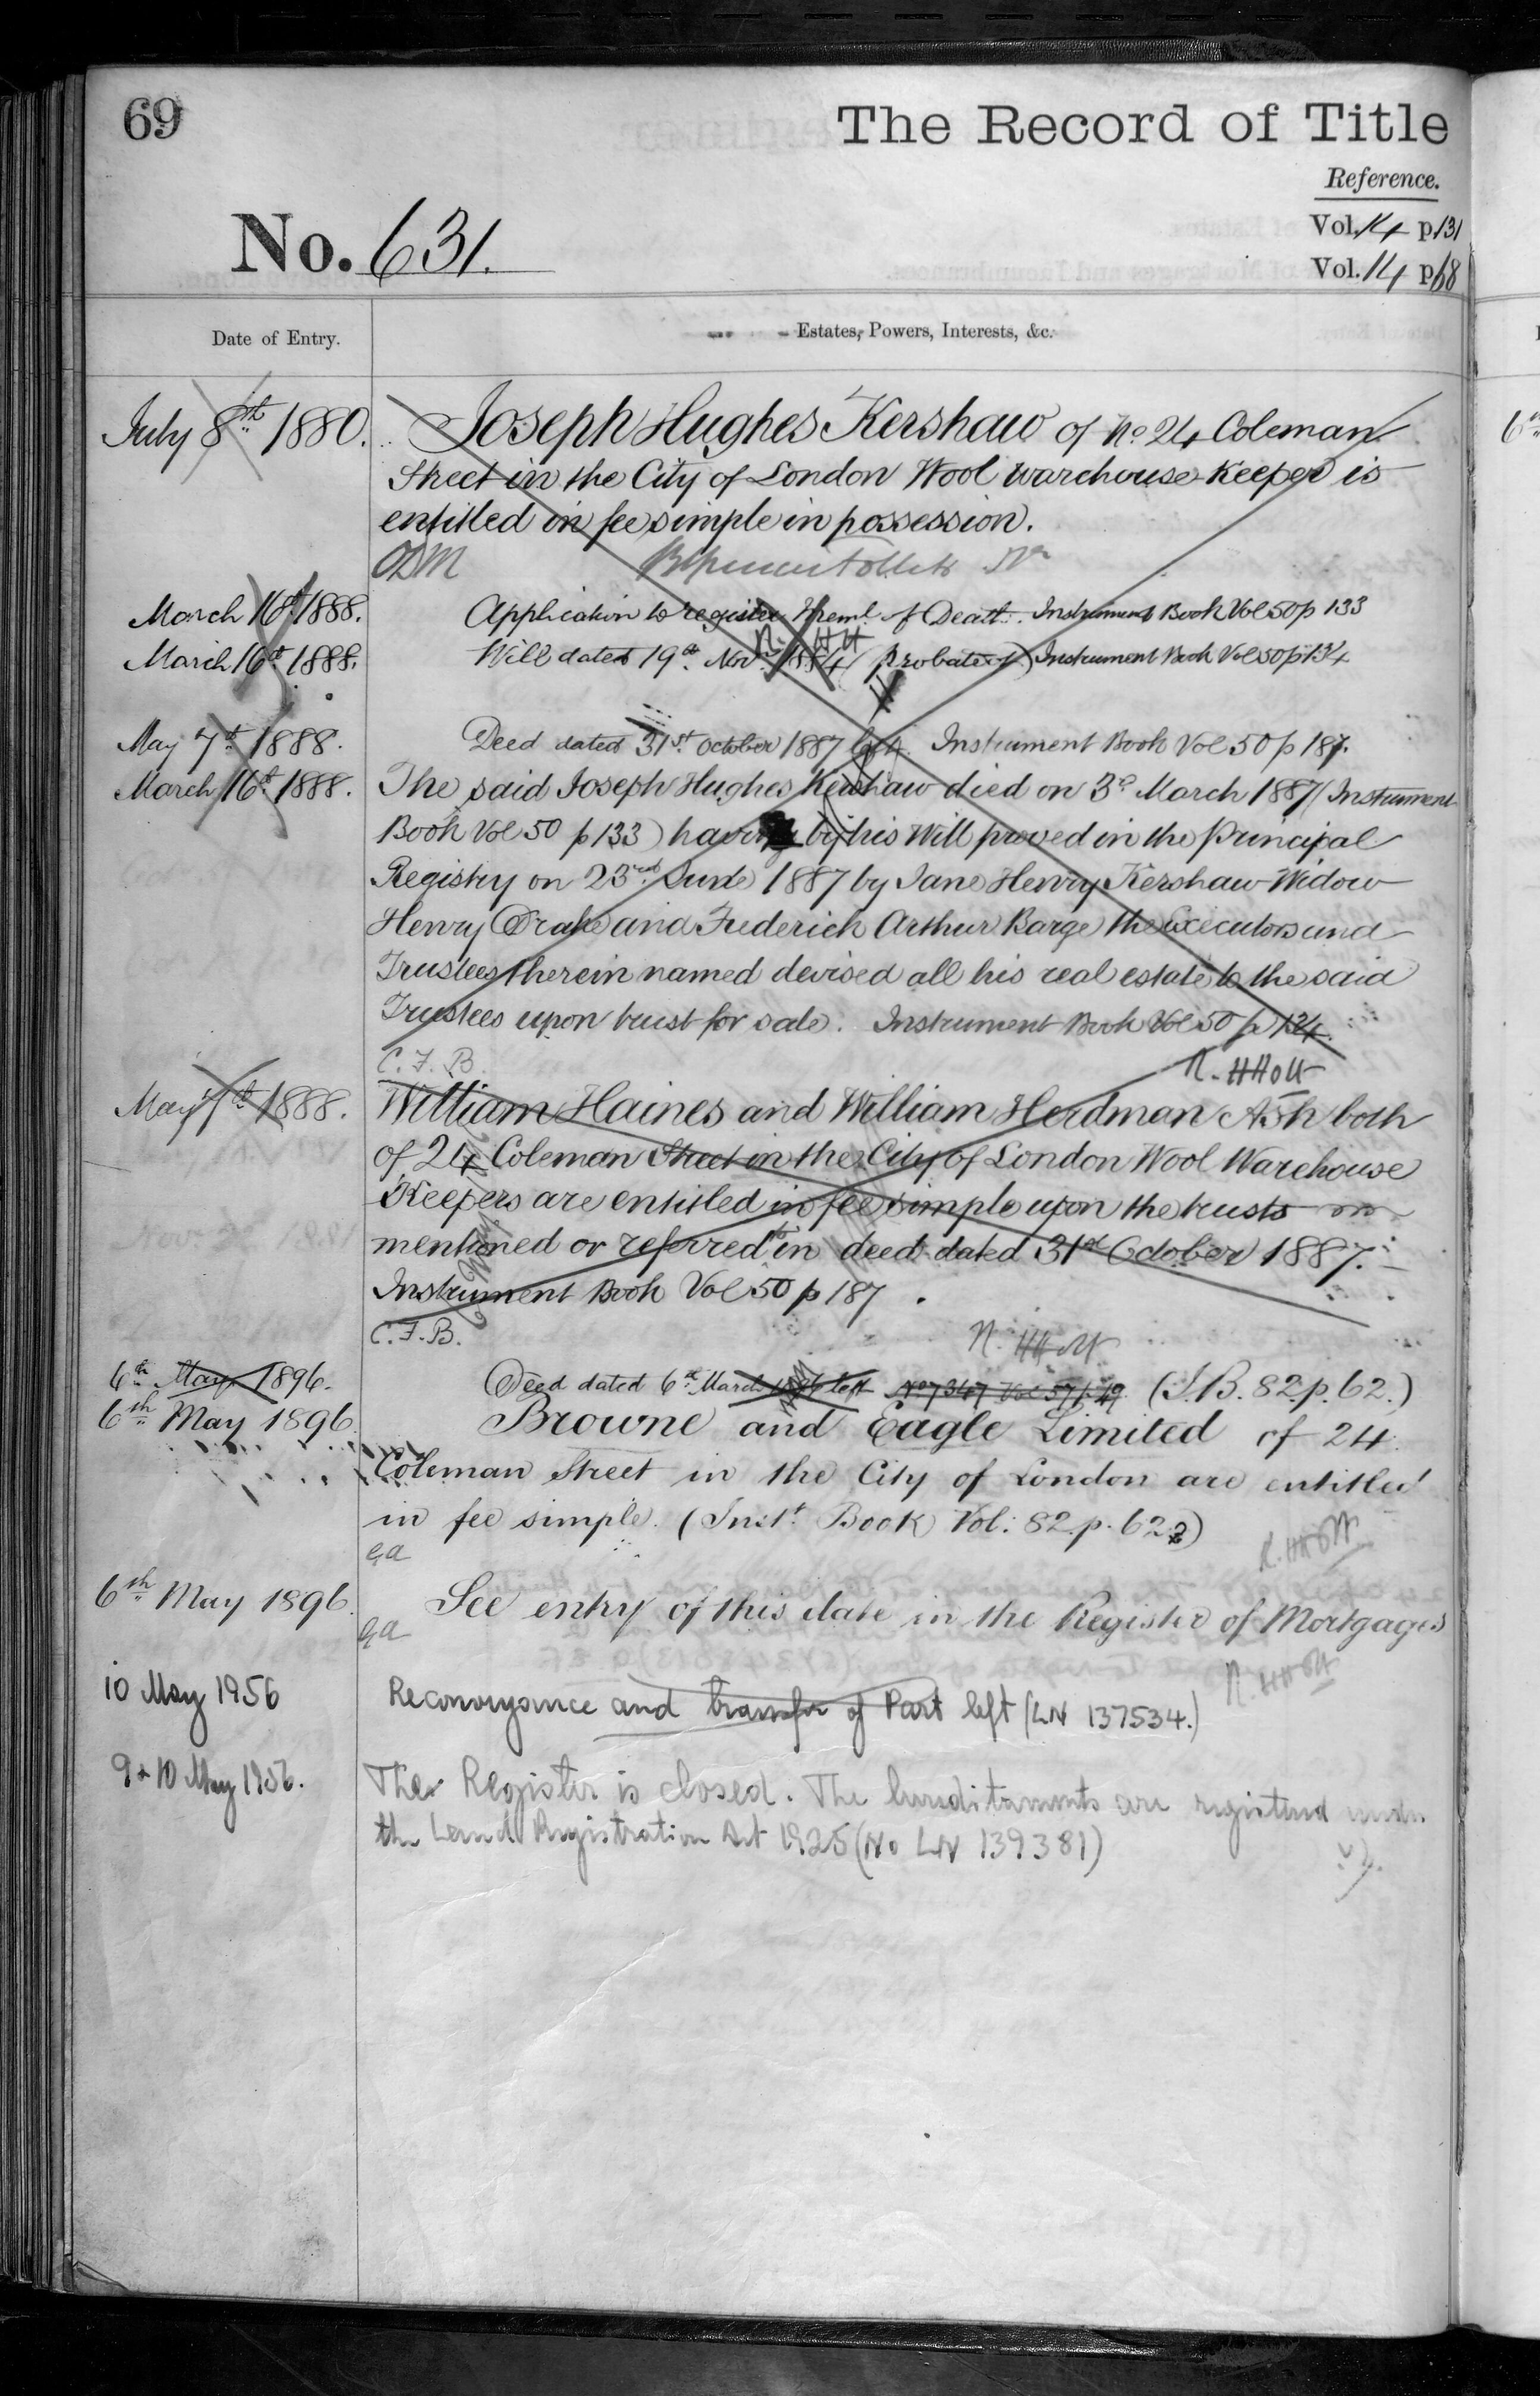 69
The Record of Title
Reference.
No. 631.
Vol. 14 p 131
Vol. 14 p 68
Date of Entry.
Estates, Powers, Interests, &c.
July 8th 1880. Joseph Hughes Kershaw of No 24 Coleman
Street in the City of London Wool warehouse Keeper is
entitled in fee simple in possession.
March 16th 1888. Application to register Hreml. of Death. Instrument Book Vol 50 p 133
March 16th 1888. Will dated 19th Novr. 1884 (Probate of) Instrument Book Vol 50 p 134
May 7th 1888. Deed dated 31st October 1887 left. Instrument Book Vol 50 p 187.
March 16th 1888. The said Joseph Hughes Kershaw died on 3rd March 1887 (Instrument
Book Vol 50 p 133) having by his Will proved in the Principal
Registry on 23rd June 1887 by Jane Henry Kershaw Widow
Henry Drake and Frederick Arthur Barge the Executors and
Trustees therein named devised all his real estate to the said
Trustees upon trust for sale. Instrument Book Vol 50 p 134.
C. F. B.
N. HHolt
May 7th 1888. William Haines and William Herdman Ash both
of 24 Coleman Street in the City of London Wool Warehouse
Keepers are entitled in fee simple upon the trusts
mentioned or referred to in deed dated 31st October 1887.
Instrument Book Vol 50 p 187.
C. F. B.
N. HHolt
6th May 1896. Deed dated 6th March 1896 left No 7347 Vol 57 p. 49. (I.B. 82 p. 62.)
6th May 1896 Browne and Eagle Limited of 24
Coleman Street in the City of London are entitled
in fee simple. (Inst. Book Vol: 82 p. 62)
GA
N. HHolt
6th May 1896. See entry of this date in the Register of Mortgages
GA
N. HHolt
10 May 1956 Reconveyance and transfer of Part left (LN 137534.)
9 & 10 May 1956. The Register is closed. The hereditaments are registered under
the Land Registration Act 1925 (No LN 139381)